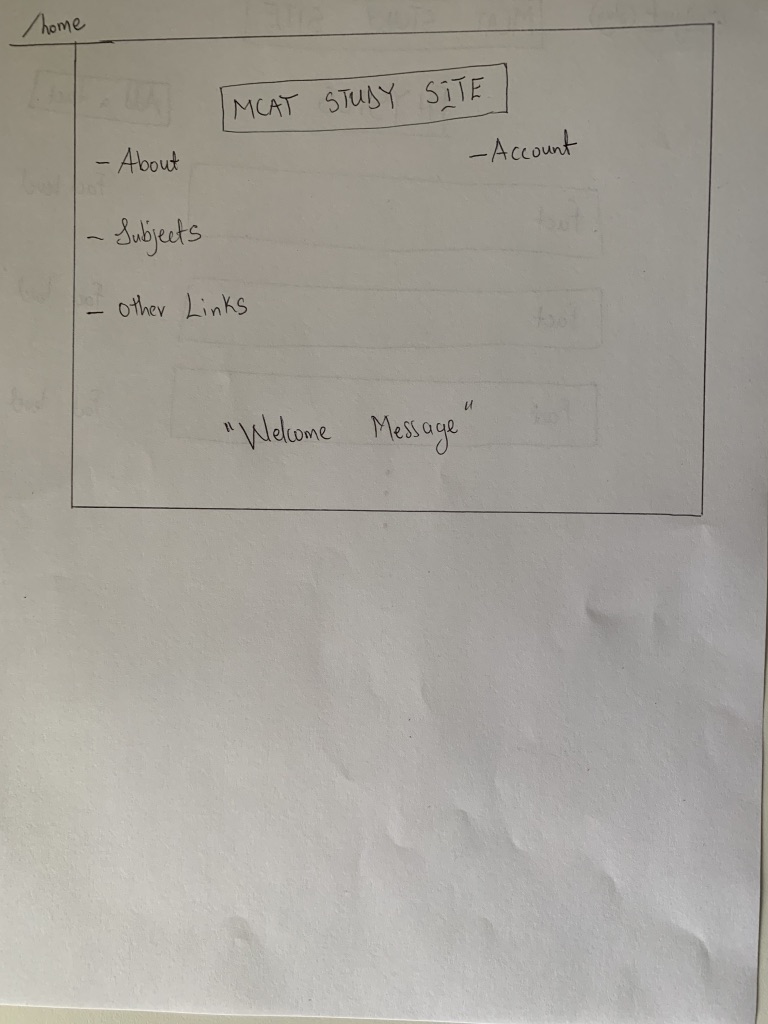 /home
MCAT STUDY SITE
- About
- Account
- Subjects
- Other Links
"Welcome Message"